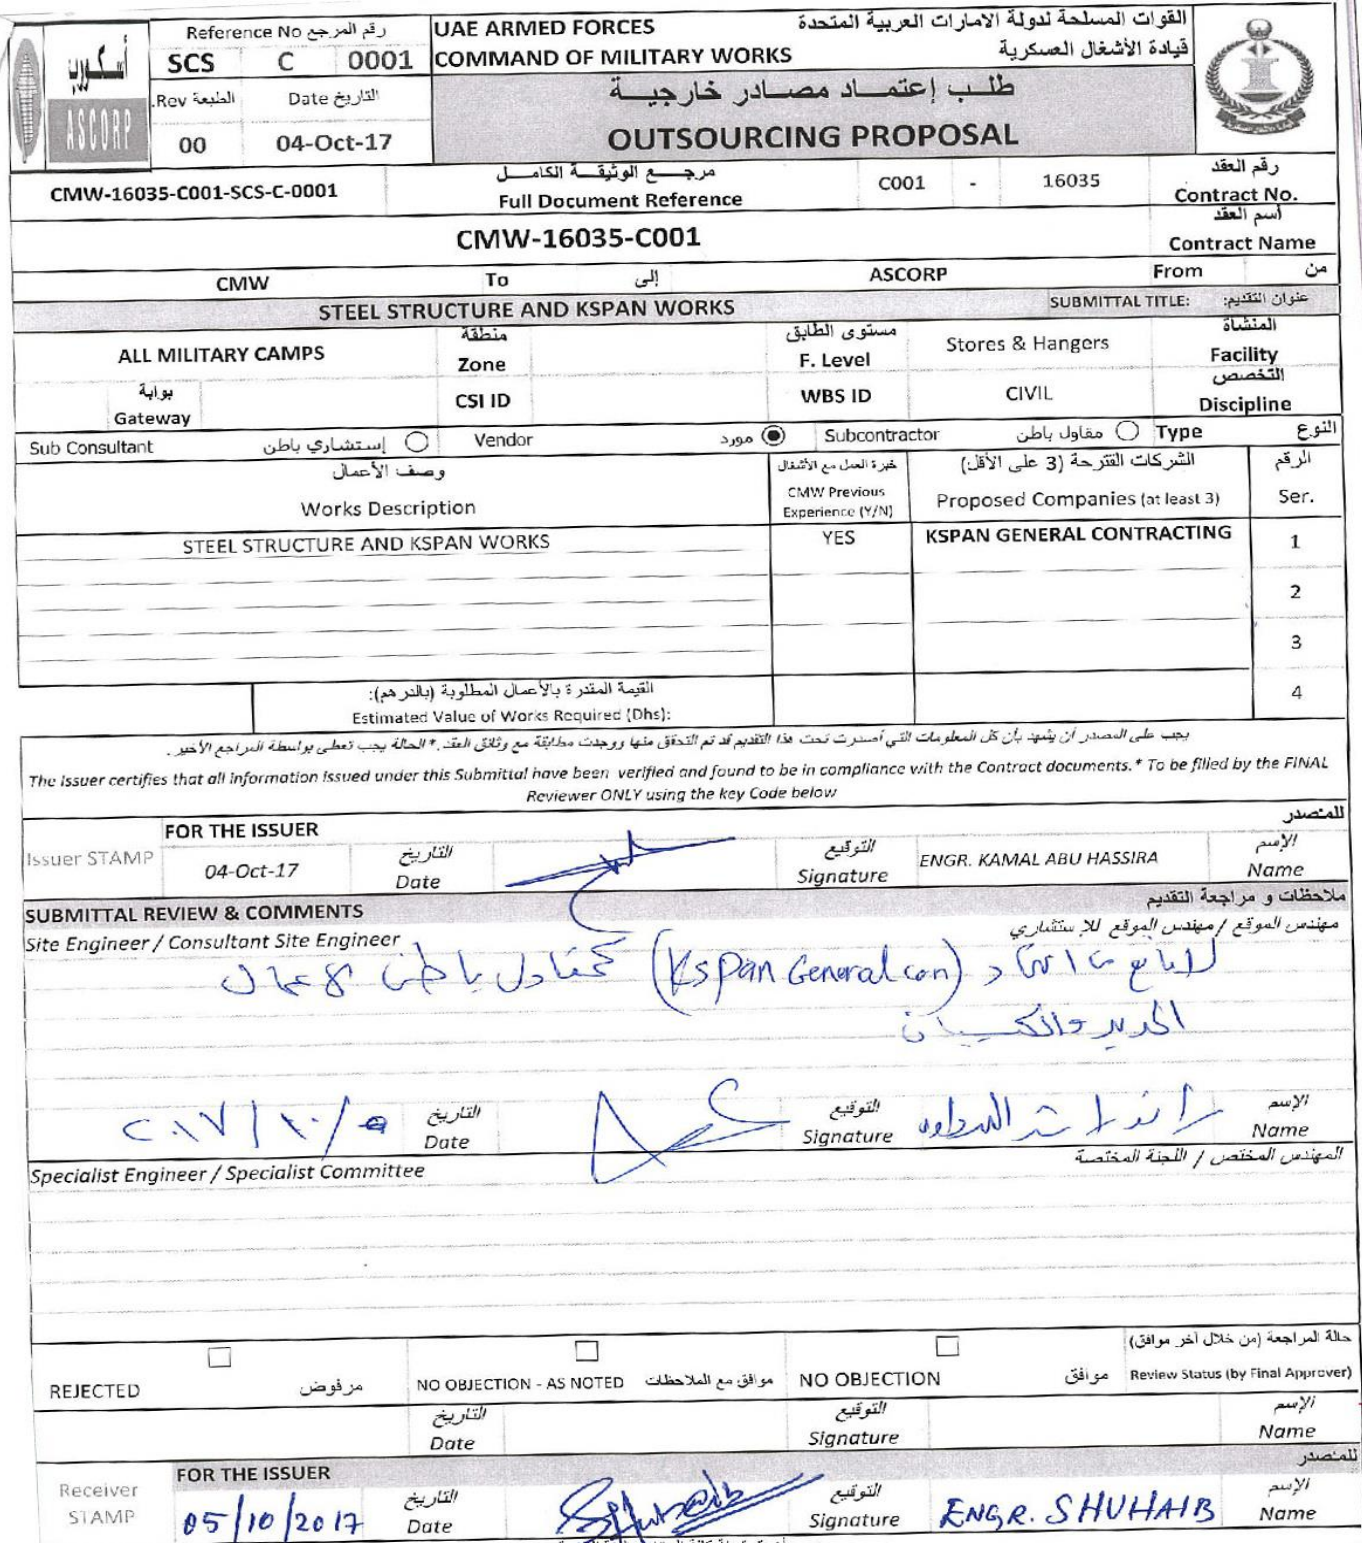 أسكورب
ASCORP
Reference No رقم المرجع
SCS C 0001
Rev. الطبعة Date التاريخ
00 04-Oct-17
UAE ARMED FORCES القوات المسلحة لدولة الامارات العربية المتحدة
COMMAND OF MILITARY WORKS قيادة الأشغال العسكرية
طلب إعتماد مصادر خارجية
OUTSOURCING PROPOSAL
CMW-16035-C001-SCS-C-0001
مرجع الوثيقة الكامل
Full Document Reference
C001 - 16035
رقم العقد
Contract No.
CMW-16035-C001
أسم العقد
Contract Name
CMW To إلى ASCORP From من
STEEL STRUCTURE AND KSPAN WORKS SUBMITTAL TITLE: عنوان التقديم:
ALL MILITARY CAMPS
منطقة
Zone
مستوى الطابق
F. Level
Stores & Hangers
المنشاة
Facility
بوابة
Gateway
CSI ID
WBS ID
CIVIL
التخصص
Discipline
Sub Consultant إستشاري باطن Vendor مورد Subcontractor مقاول باطن Type النوع
وصف الأعمال
Works Description
خبرة العمل مع الأشغال
CMW Previous
Experience (Y/N)
الشركات القترحة (3 على الأقل)
Proposed Companies (at least 3)
الرقم
Ser.
STEEL STRUCTURE AND KSPAN WORKS YES KSPAN GENERAL CONTRACTING 1
2
3
4
القيمة المقدرة بالأعمال المطلوبة (بالدرهم):
Estimated Value of Works Required (Dhs):
يجب على المصدر أن يشهد بأن كل المعلومات التي أصدرت تحت هذا التقديم قد تم التحقق منها ووجدت مطابقة مع وثائق العقد. * الحالة يجب تعطى بواسطة المراجع الأخير .
The Issuer certifies that all information issued under this Submittal have been verified and found to be in compliance with the Contract documents.* To be filled by the FINAL
Reviewer ONLY using the key Code below
للمصدر
FOR THE ISSUER
Issuer STAMP
04-Oct-17
التاريخ
Date
التوقيع
Signature
ENGR. KAMAL ABU HASSIRA
الإسم
Name
SUBMITTAL REVIEW & COMMENTS ملاحظات و مراجعة التقديم
Site Engineer / Consultant Site Engineer مهندس الموقع /مهندس الموقع للإستشاري
لا مانع من اعتماد (Kspan General con) كمقاول باطن لأعمال
الحديد والكسبان
٢٠١٧/١٠/٥
التاريخ
Date
التوقيع
Signature
الإسم
Name
Specialist Engineer / Specialist Committee المهندس المختص / اللجنة المختصة
REJECTED مرفوض
NO OBJECTION - AS NOTED موافق مع الملاحظات
NO OBJECTION موافق
حالة المراجعة (من خلال آخر موافق)
Review Status (by Final Approver)
التاريخ
Date
التوقيع
Signature
الإسم
Name
للمصدر
FOR THE ISSUER
Receiver
STAMP
05/10/2017
التاريخ
Date
Shuhaib
التوقيع
Signature
ENGR. SHUHAIB
الإسم
Name